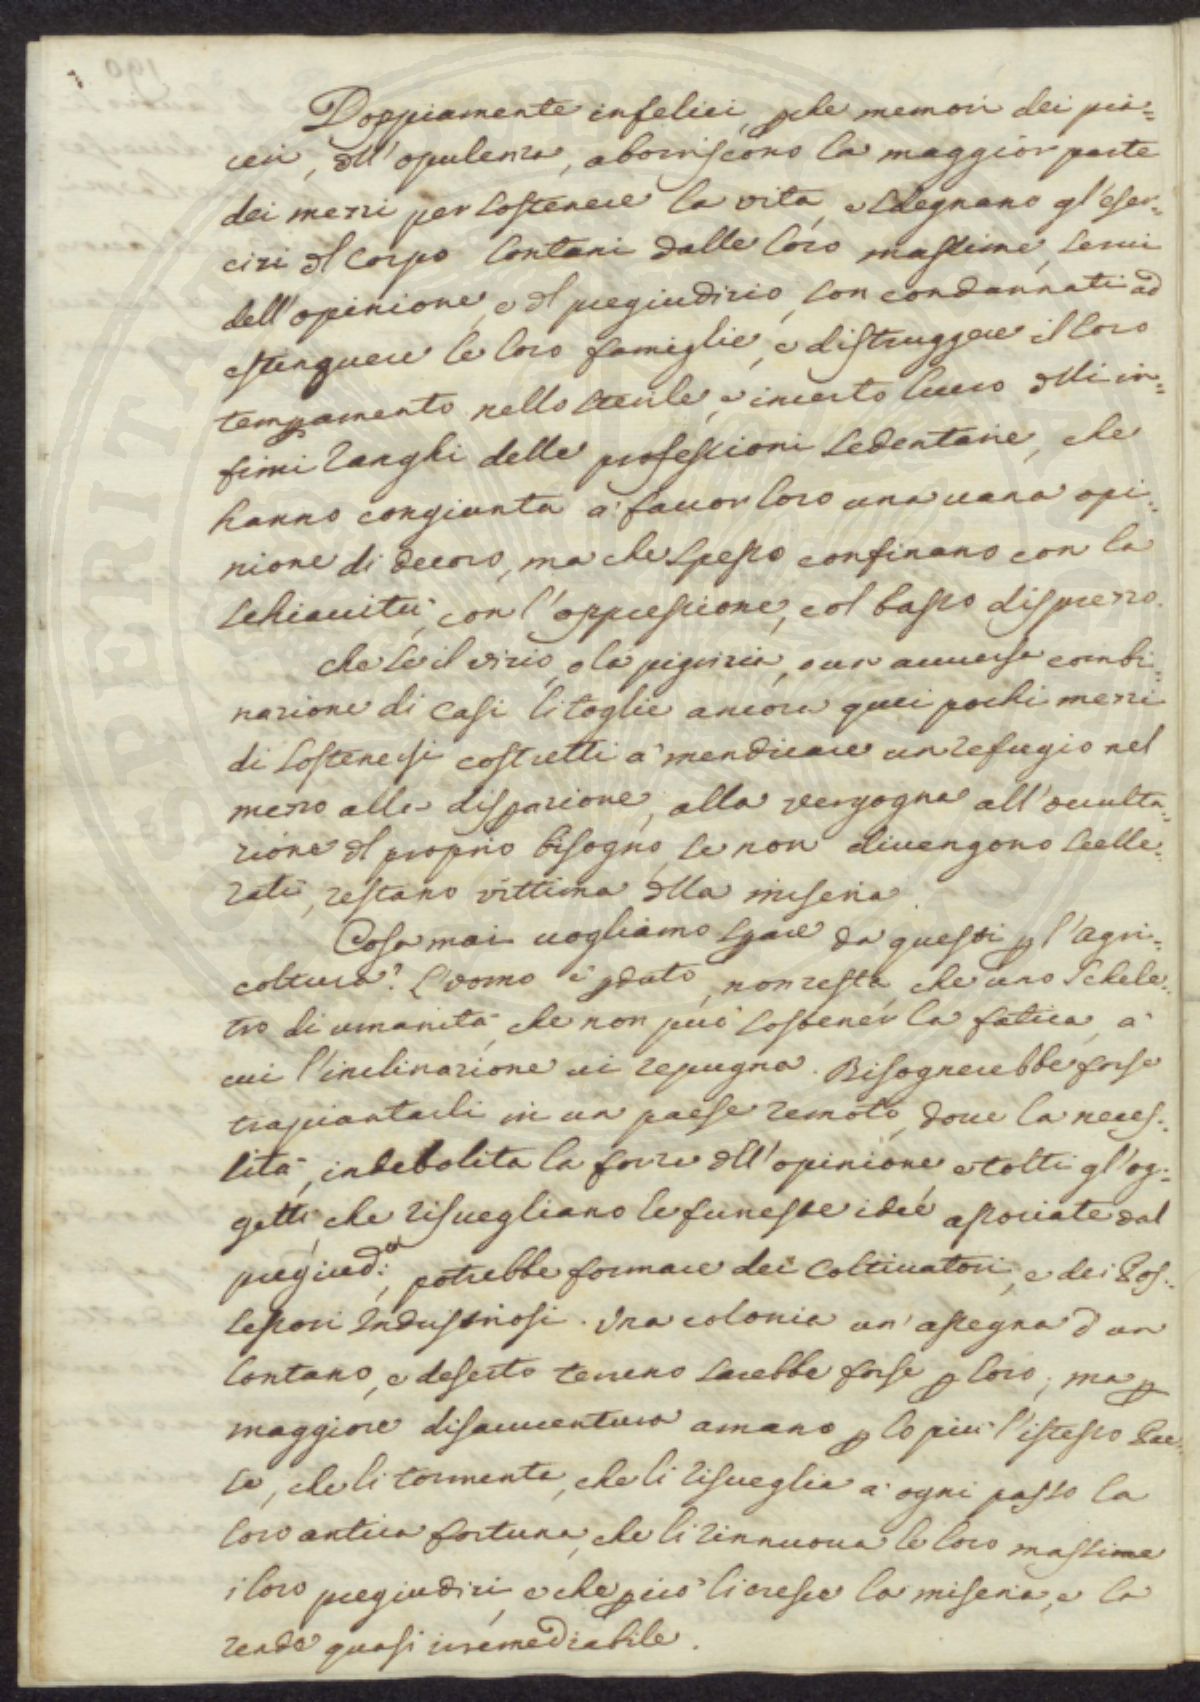 Doppiamente infelici, pche memori dei pia=
ceri, dll'opulenza, aborriscono la maggior parte
dei mezzi per sostenere la vita, e sdegnano gl'eser=
cizi dl Corpo lontani dalle loro massime, servi
dell'opinione, e dl pregiudizio, son condannati ad
estenguere le loro famiglie, e distruggere il loro
tempamento nello sterile, e incerto lucro dlli in=
fimi ranghi delle professioni sedentarie, che
hanno congiunta a' favor loro una vana opi=
nione di decoro, ma che spesso confinano con la
schiavitù, con l'oppressione, col basso disprezzo.
che se il vizio, o la pigrizia, o un avversa combi=
nazione di casi li toglie ancora quei pochi mezzi
di sostenersi costretti a' mendicare un refugio nel
mezzo alla dispazione, alla vergogna all'occulta=
zione dl proprio bisogno, se non divengono scelle=
rati, restano vittima dlla miseria.
Cosa mai vogliamo spare da questi p l'agri=
coltura? L'uomo è pduto, non resta, che uno schele=
tro di umanità, che non può sostener la fatica, a'
cui l'inclinazione vi repugna. Bisognerebbe forse
trapiantarli in un paese remoto, dove la neces=
sità, indebolita la forza dll'opinione, e tolti gl'og=
getti, che risvegliano le funeste idee associate dal
pregiud:o, potrebbe formare dei Coltivatori, e dei Pos=
sessori Industriosi. Una colonia un'assegna d un
lontano, e deserto terreno sarebbe forse p loro; ma p
maggiore disavventura amano p lo più l'istesso Pae=
se, che li tormenta, che li risveglia a' ogni passo la
loro antica fortuna, che li rinnuova le loro massime
i loro pregiudizi, e che pciò li cresce la miseria, e la
rende quasi irremediabile.